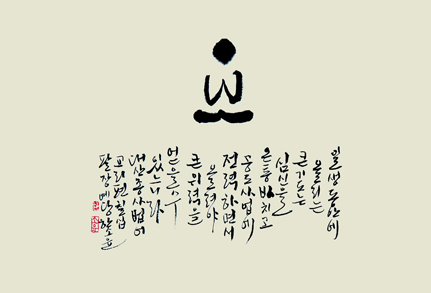 일생 동안에
올리는
큰 기도는
심신을
온통 바치고
공도사업에
전력하면서
올려야
큰 위력을
얻을 수
있느니라
대산종사법어
교리편 칠십
팔장